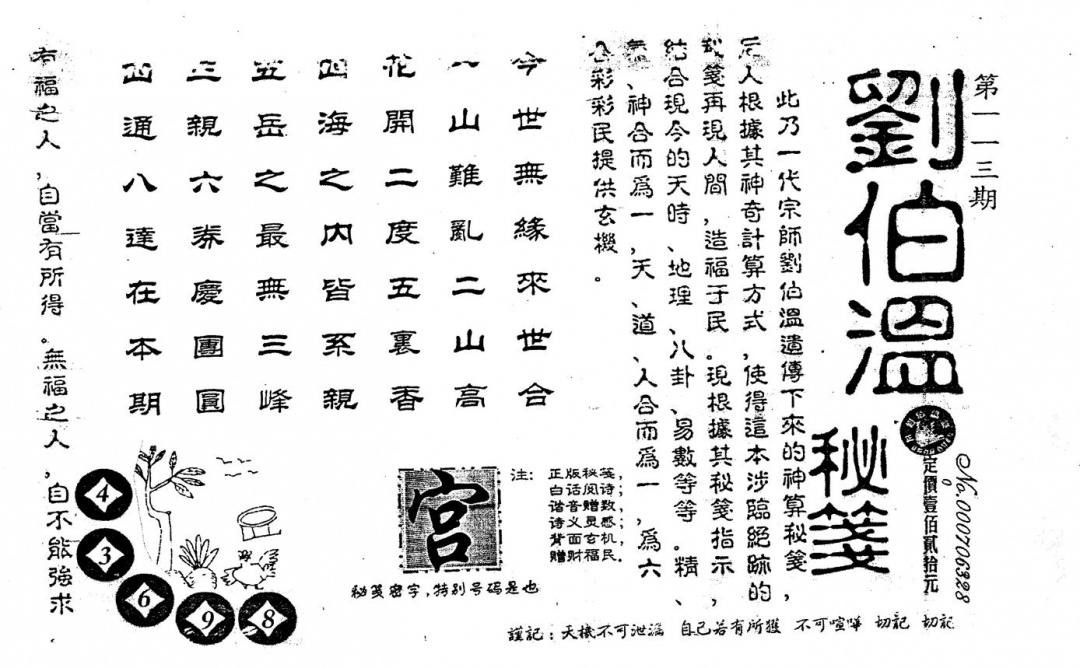 第一一三期
劉伯溫
秘箋
定價壹佰貳拾元
No.000706328
此乃一代宗師劉伯溫遺傳下來的神算秘箋，
人根據其神奇計算方式，使得這本涉臨絕跡的
秘箋再現人間，造福于民。現根據其秘箋指示，
結合現今的天時、地理、八卦、易數等等。精、
、神合而爲一，天、道、人合而爲一，爲六
合彩彩民提供玄機。
今世無緣來世合
山難亂二山高
花開二度五裏香
四海之內皆系親
五岳之最無三峰
三親六券慶團圓
四通八達在本期
有福之人，自當有所得。無福之人，自不能強求
注：正版秘笺，
白话阅诗；
谐音赠致，
诗义灵感；
背面玄机，
赠财福民。
宫
秘笺密字，特别号码是也
4
3
6
9
8
謹記：天機不可泄漏 自己若有所獲 不可喧嘩 切記 切記